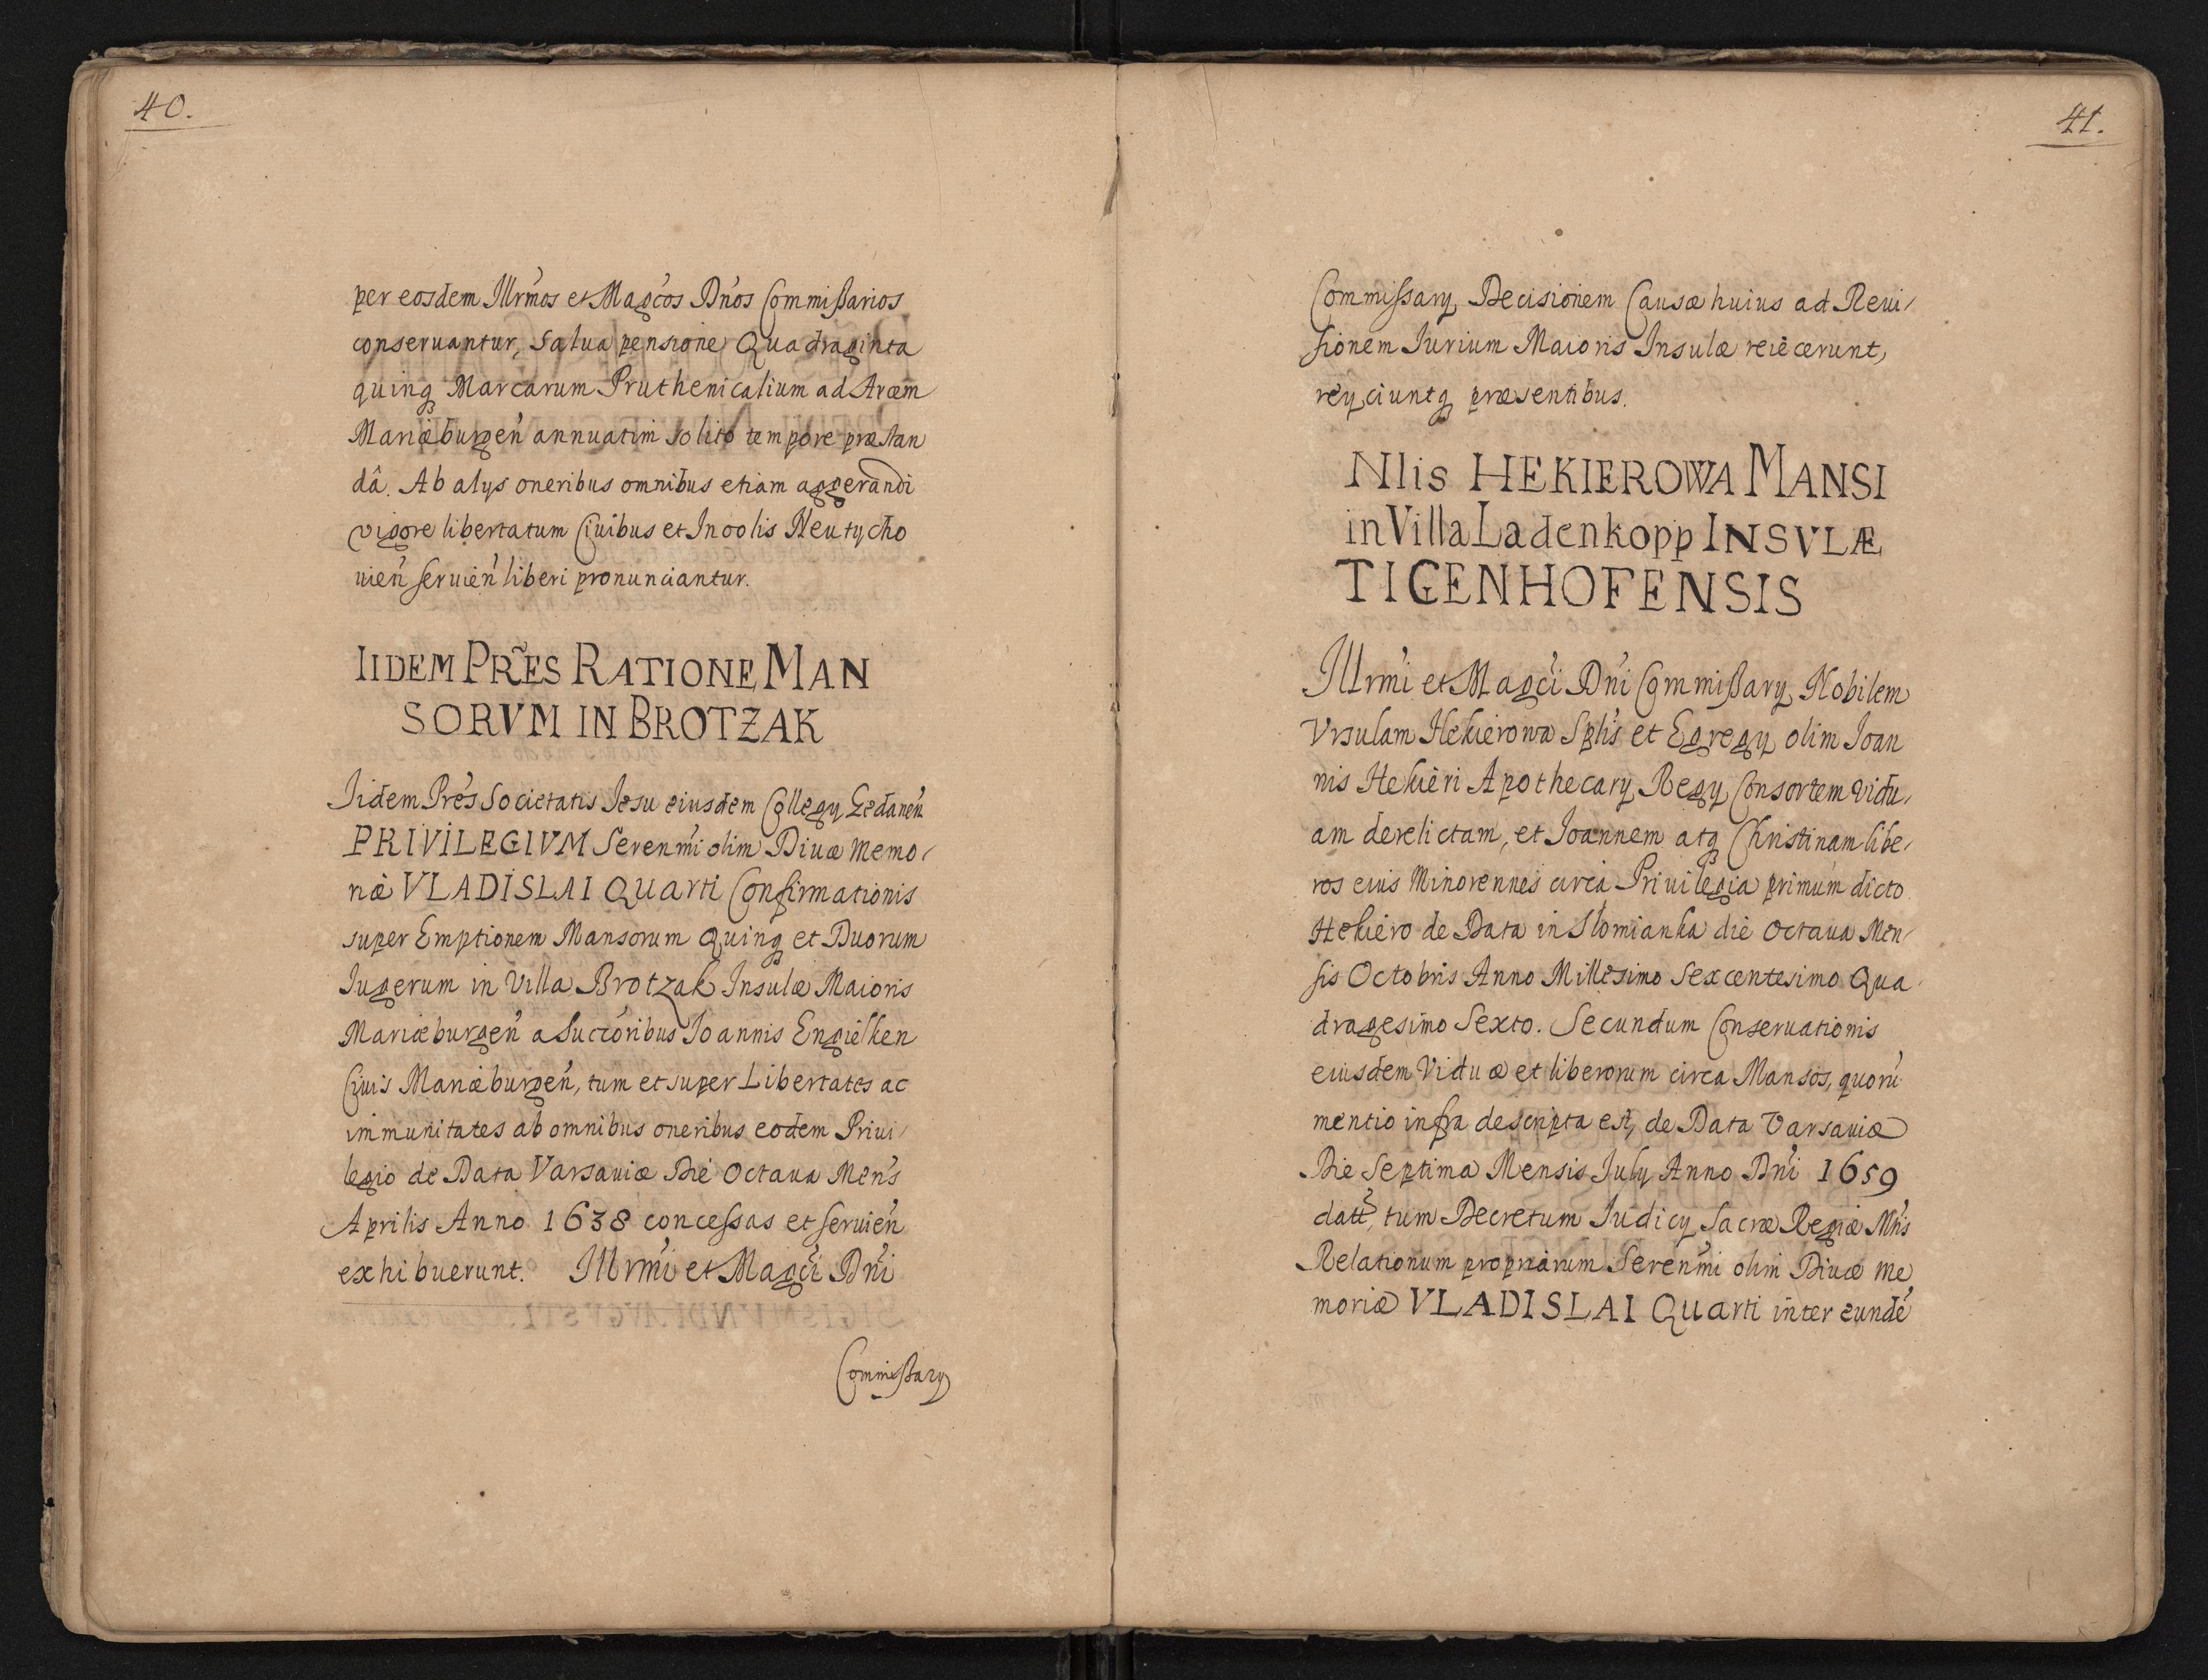 40.
per eosdem Illrm̃os et Magc̃os Dn̄os Commißarios
conseruantur, Salua pensione Quadraginta
quinq Marcarum Pruthenicalium ad Arcem
Mariæburgen̄ annuatim solito tempore præstan
dâ. Ab alys oneribus omnibus etiam aggerandi
vigore libertatum Ciuibus et Incolis Neutycho
uien̄ seruien̄ liberi pronunciantur.
IIDEM PR̃ES RATIONE MAN
SORVM IN BROTZAK
Iidem Pr̃es Societatis Iesu eiusdem Collegy Gedanen̄
PRIVILEGIVM Serenm̃i olim Diuæ Memo/
riæ VLADISLAI Quarti Confirmationis
super Emptionem Mansorum Quinq et Duorum
Iugerum in Villa Brotzak Insulæ Maioris
Mariæburgen̄ a Succc̃oribus Ioannis Engielken
Ciuis Mariæburgen̄, tum et super Libertates ac
immunitates ab omnibus oneribus eodem Priui/
legio de Data Varsauiæ Die Octaua Men̄s
Aprilis Anno 1638 concessas et seruien̄
exhibuerunt. Illrm̃i et Magc̃i Dn̄i
Commißary
41.
Commißary Decisionem Causæ huius ad Reui/
sionem Iurium Maioris Insulæ reiecerunt,
reyciuntq præsentibus.
Nlis HEKIEROWA MANSI
in Villa Ladenkopp INSVLÆ
TIGENHOFENSIS
Illrm̃i et Magc̃i Dn̄i Commißary Nobilem
Vrsulam Hekierowa Spl̃is et Egregy olim Ioan
nis Hekieri Apothecary Regy Consortem Vidu/
am derelictam, et Ioannem atq Christinam libe/
ros eius Minorennes circa Priuilegia primum dicto
Hekiero de Data in Słomianka die Octaua Men/
sis Octobris Anno Millesimo Sexcentesimo Qua/
dragesimo Sexto. Secundum Conseruationis
eiusdem Viduæ et liberorum circa Mansos, quorū
mentio infra descripta est, de Data Varsauiæ
Die Septima Mensis July Anno Dn̄i 1659
datt, tum Decretum Iudicy Sacræ Regiæ Mt̃is
Relationum propriarum Serenm̃i olim Diuæ Me
moriæ VLADISLAI Quarti inter eundē